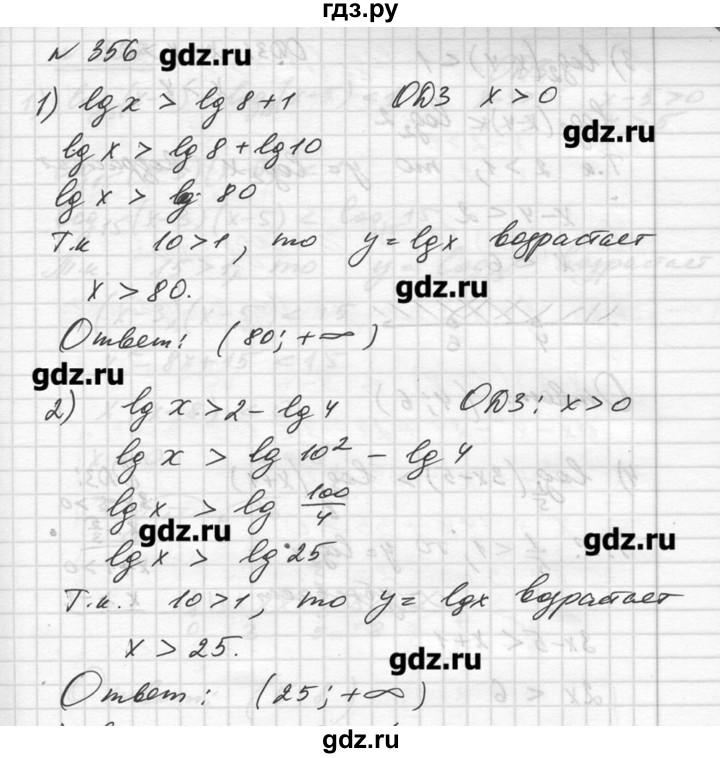 гдз.ру
№ 356 gdz.ru
1) lg x > lg 8 + 1 ОДЗ x > 0
gdz.ru
lg x > lg 8 + lg 10
lg x > lg 80
Т.к 10 > 1, то y = lg x возрастает
x > 80. gdz.ru
Ответ: (80; +∞)
gdz.ru
2) lg x > 2 - lg 4 ОДЗ: x > 0
lg x > lg 10² - lg 4
lg x > lg 100/4
gdz.ru gdz.ru
lg x > lg 25
Т.к. 10 > 1, то y = lg x возрастает
x > 25. gdz.ru
Ответ: (25; +∞)
gdz.ru